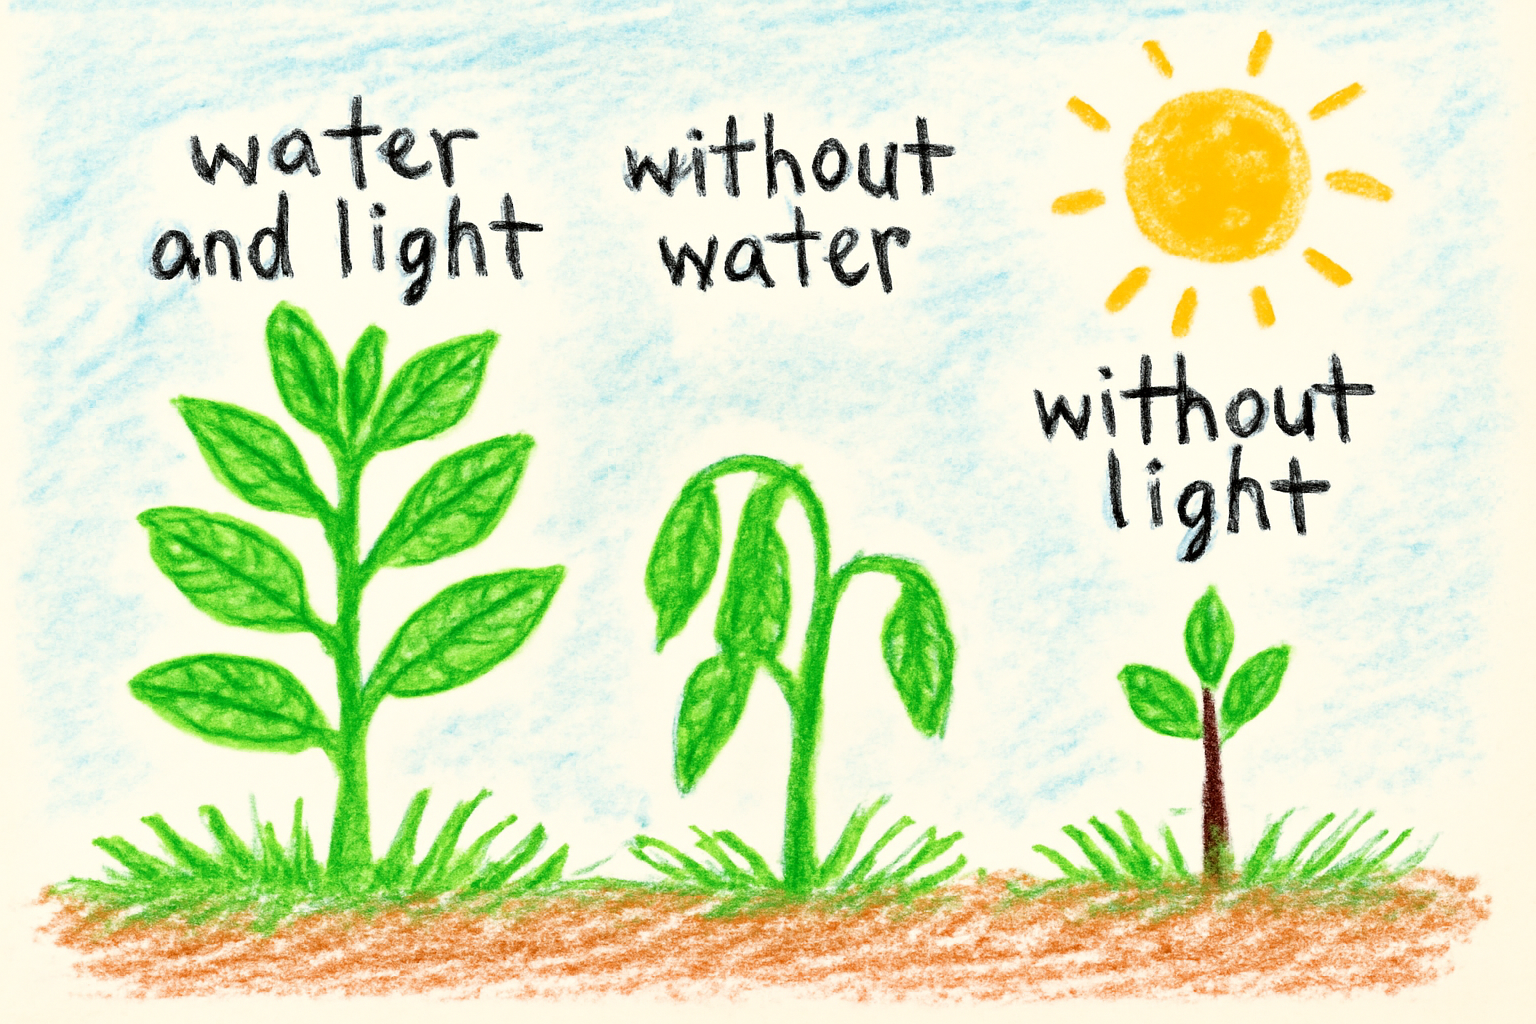 water
and light
without
water
without
light